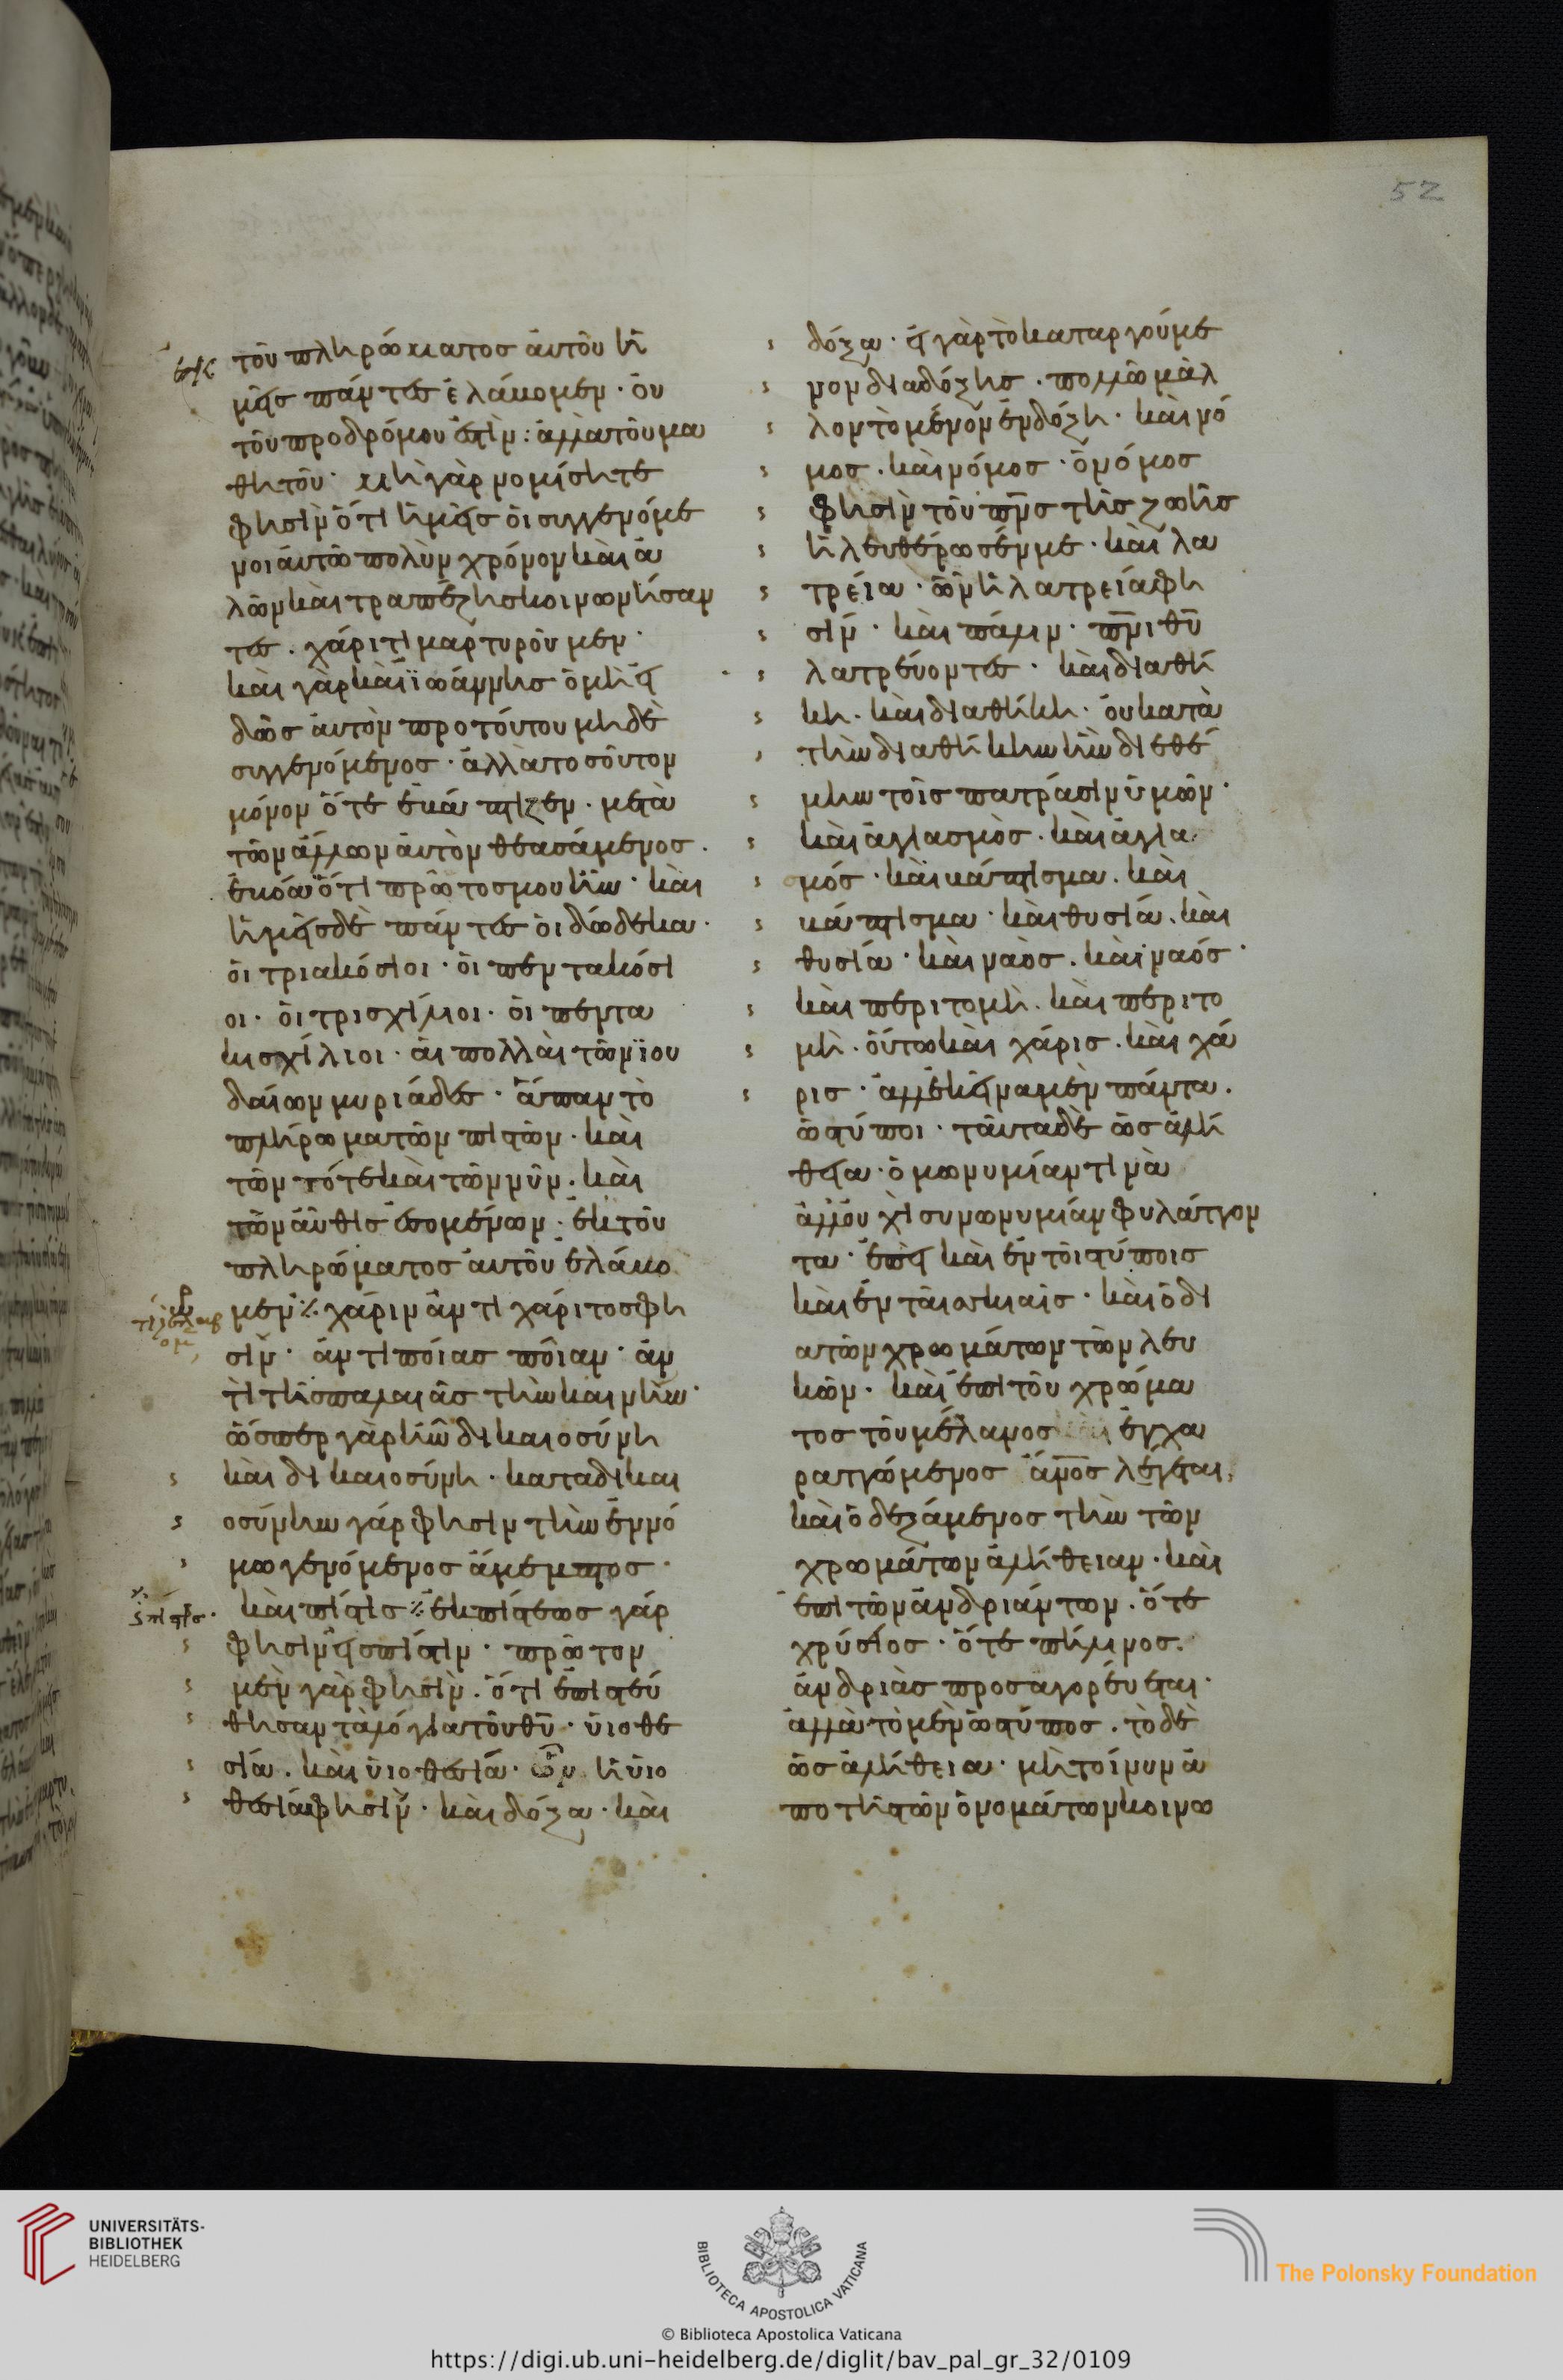 52
τοῦ πληρώματος ἀυτοῦ ἡ
μεῖς πάντες ἐλάβομεν· ὀυ
τοῦ προδρόμου ἐστὶν: ἀλλὰ τοῦ μα
θητοῦ· μὴ γὰρ νομίσητε
φησὶν ὅτι ἡμεῖς ὁι συγγενόμε
νοι ἀυτῶ πολὺν χρόνον καὶ ἁ
λῶν καὶ τραπέζης κοινωνήσαν
τες. χάριτι μαρτυροῦμεν·
καὶ γὰρ καὶ ϊωάννης ὁ μὴ εἰ
δὼς ἀυτὸν προτούτου μηδὲ
συγγενόμενος· ἀλλὰ τοσοῦτον
μόνον ὅτε ἐβάπτιζεν. μετὰ
τῶν ἄλλων ἀυτὸν θεασάμενος.
ἐβόα ὅτι πρῶτος μου ἦν· καὶ
ἡμεῖς δὲ πάντες ὁι δώδεκα·
ὁι τριακόσιοι· ὁι πεντακόσι
οι· ὁι τρισχίλιοι· ὁι πεντα
κισχίλιοι· ἁι πολλὰι τῶν ϊου
δαίων μυριάδες· ἅπαν τὸ
πλήρωμα τῶν πιστῶν· καὶ
τῶν τότε καὶ τῶν νῦν. καὶ
τῶν ἀῦθις ἐσομένων· ἐκ τοῦ
πληρώματος ἀυτοῦ ἐλάβο
μεν· χάριν ἀντὶ χάριτος φη
σὶν· ἀντὶ ποίας ποῖαν· ἀν
τὶ τῆς παλαιᾶς τὴν καινήν·
ὥσπερ γὰρ ἦν δικαιοσύνη
καὶ δικαιοσύνη· κατὰ δικαι
οσύνην γάρ φησιν τὴν ἐν νό
μω γενόμενος ἄμεμπτος·
καὶ πίστις ἐκ πίστεως γάρ
φησιν εἰς πίστιν· πρῶτον
μὲν γὰρ φησὶν. ὅτι ἐπιστεύ
θησαν τὰ λόγια τοῦ θῦ· ὑιοθε
σία. καὶ ὑιοθεσία· ὧν ἡ ὑιο
θεσία φησὶν· καὶ δόξα· καὶ
δόξα· εἰ γὰρ τὸ καταργούμε
νον διαδόξης. πολλῶ μᾶλ
λον τὸ μένον ἐνδόξη· καὶ νό
μος. καὶ νόμος· ὁ νόμος
φησὶν τοῦ πνς τῆς ζωῆς
ἠλευθέρωσέν με· καὶ λα
τρεία· ὧν ἡ λατρεία φη
σίν· καὶ πάλιν· πνι θῦ
λατρεύοντες· καὶ διαθή
κη. καὶ διαθήκη· ὀυ κατὰ
τὴν διαθήκην ἣν διεθέ
μην τοῖς πατράσιν ὑμῶν·
καὶ ἁγιασμὸς. καὶ ἁγια
σμός· καὶ βάπτισμα. καὶ
βάπτισμα· καὶ θυσία. καὶ
θυσία· καὶ ναὸς. καὶ ναός·
καὶ περιτομὴ. καὶ περιτο
μὴ. οὕτω καὶ χάρις. καὶ χά
ρις· ἀλλ ἐκεῖνα μὲν πάντα.
ὡς τύποι· ταῦτα δὲ ὡς ἀλή
θεια· ὁμωνυμίαν τινὰ
ἀλλ ὀυχὶ συνωνυμίαν φυλάττον
τα· ἐπεὶ καὶ ἐν τοῖς τύποις
καὶ ἐν τᾶις σκιαῖς· καὶ ὁ δι
ατῶν χρωμάτων τῶν λευ
κῶν. καὶ ἐπὶ τοῦ χρώμα
τος τοῦ μέλανος ἐγχα
ραττόμενος ἄνος λέγεται.
καὶ ὁ δεξάμενος τὴν τῶν
χρωμάτων ἀλήθειαν· καὶ
ἐπὶ τῶν ἀνδριάντων. ὅτε
χρύσεος· ὅτε πήλινος.
ἀνδριὰς προσαγορέυεται·
ἀλλὰ τὸ μὲν ὡς τύπος. τὸ δὲ
ὡς ἀλήθεια· μὴ τοίνυν ἀ
πο τῆς τῶν ὀνομάτων κοινω
UNIVERSITÄTS-
BIBLIOTHEK
HEIDELBERG
BIBLIOTECA APOSTOLICA VATICANA
The Polonsky Foundation
© Biblioteca Apostolica Vaticana
https://digi.ub.uni-heidelberg.de/diglit/bav_pal_gr_32/0109